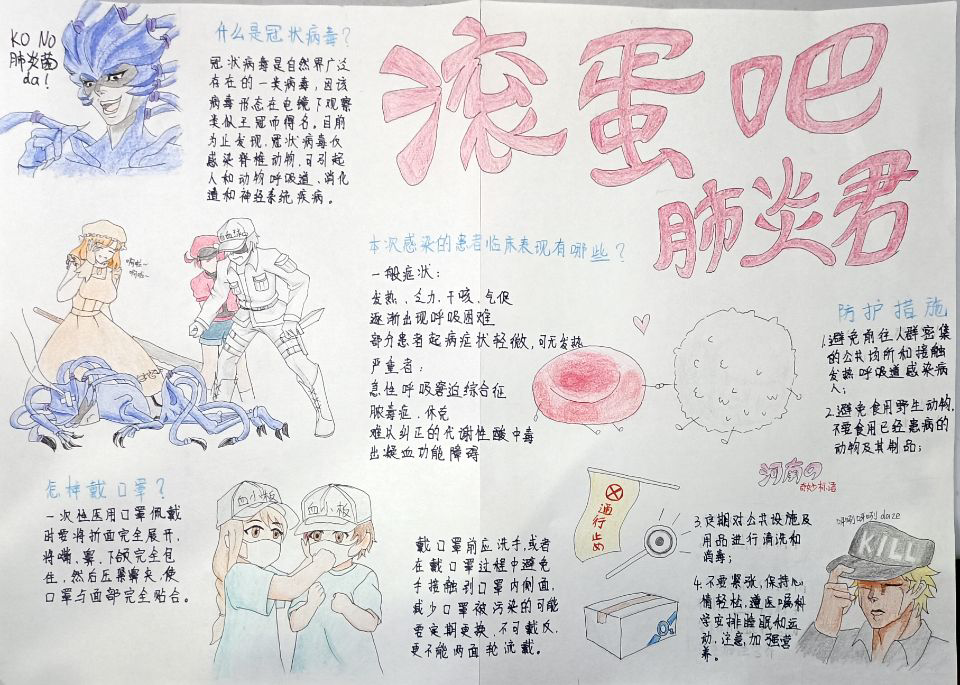 滚蛋吧
肺炎君
KO NO
肺炎菌
da!
什么是冠状病毒?
冠状病毒是自然界广泛
存在的一类病毒,因该
病毒形态在电镜下观察
类似王冠而得名。目前
为止发现,冠状病毒仅
感染脊椎动物,可引起
人和动物呼吸道、消化
道和神经系统疾病。
本次感染的患者临床表现有哪些?
一般症状:
发热、乏力、干咳、气促
逐渐出现呼吸困难
部分患者起病症状轻微,可无发热
严重者:
急性呼吸窘迫综合征
脓毒症、休克
难以纠正的代谢性酸中毒
出凝血功能障碍
防护措施
1.避免前往人群密集
的公共场所和接触
发热呼吸道感染病
人;
2.避免食用野生动物,
不要食用已经患病的
动物及其制品;
河南の
奇妙礼活
3.定期对公共设施及
用品进行清洗和
消毒;
4.不要紧张,保持心
情轻松,遵医嘱科
学安排睡眠和运
动,注意加强营
养。
怎样戴口罩?
一次性医用口罩佩戴
时要将折面完全展开,
将嘴、鼻、下颌完全包
住,然后压紧鼻夹,使
口罩与面部完全贴合。
血小板
血小板
戴口罩前应洗手,或者
在戴口罩过程中避免
手接触到口罩内侧面,
减少口罩被污染的可能
要定期更换,不可戴反,
更不能两面轮流戴。
通行止め
KILL